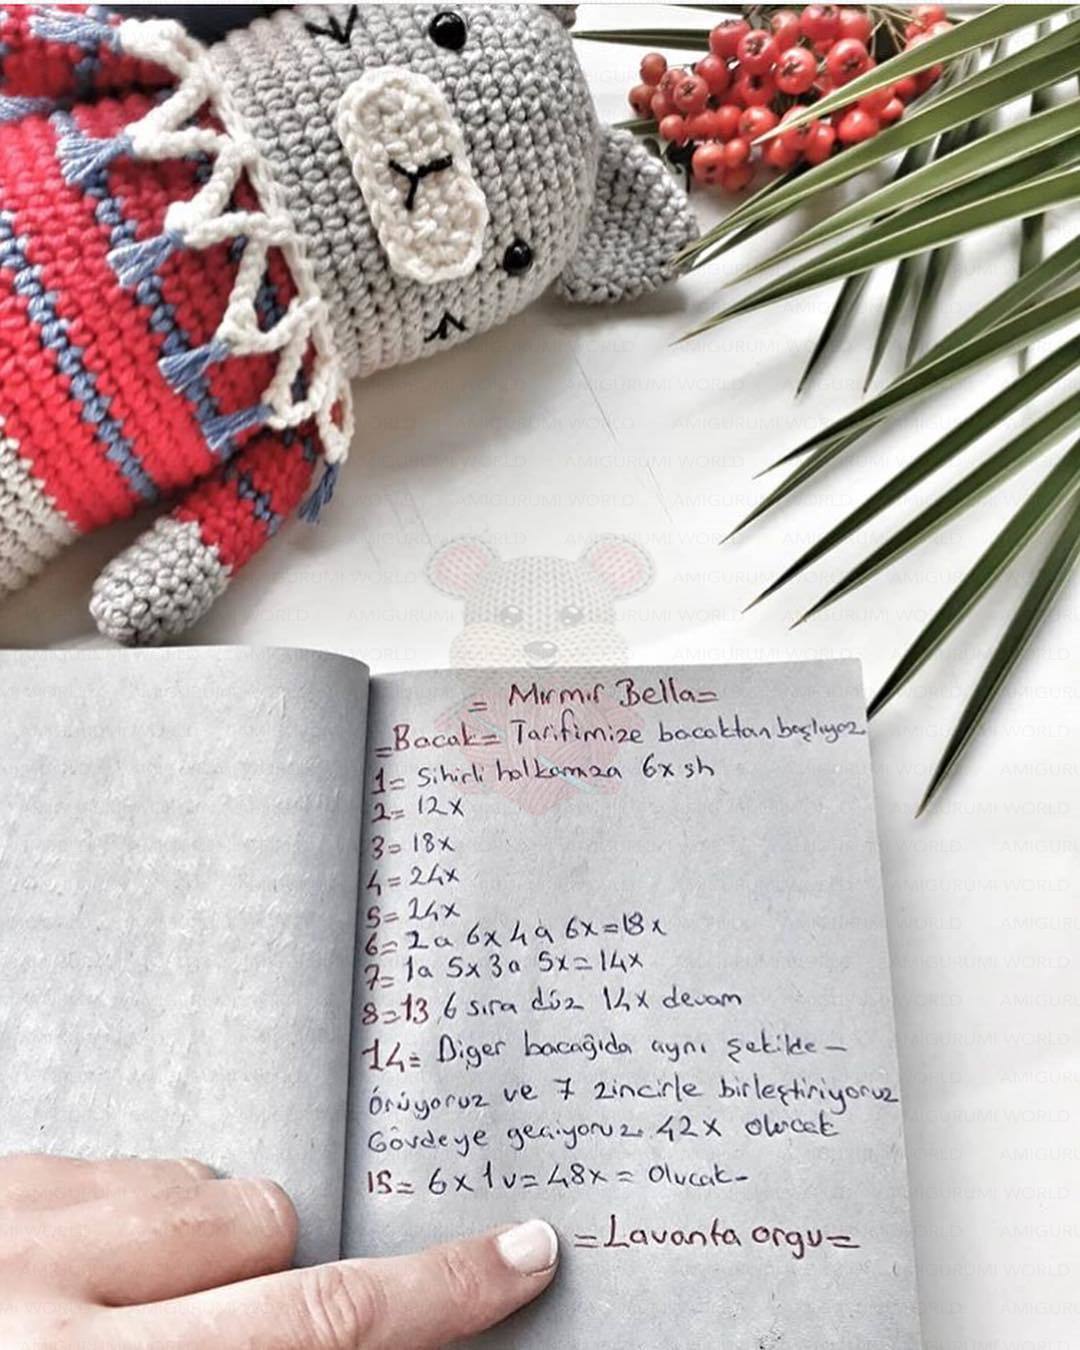 = Mırmır Bella=
=Bacak= Tarifimize bacaktan başlıyoz
1= Sihirli halkamıza 6x sh
2= 12x
3= 18x
4= 24x
5= 24x
6= 2a 6x 4a 6x=18x
7= 1a 5x 3a 5x=14x
8=13 6 sıra düz 14x devam
14= Diger bacağıda aynı şekilde-
örüyoruz ve 7 zincirle birleştiriyoruz
Gövdeye geçiyoruz. 42x olucak
15= 6x1v=48x= olucak-
=Lavanta orgu=
AMIGURUMI WORLD